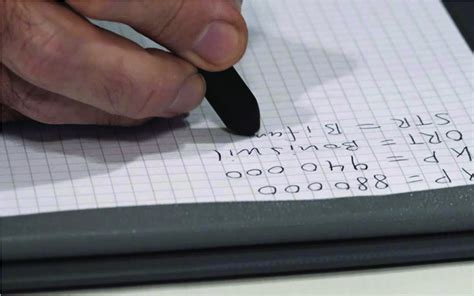 KP = 880000
KP = 940 000
ORT = Boniswil
STR =